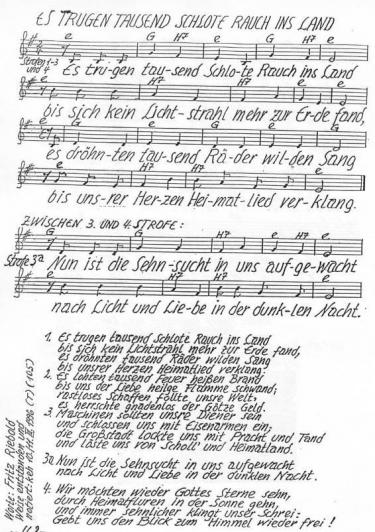 ES TRUGEN TAUSEND SCHLOTE RAUCH INS LAND
e G H7 e G H7
Strofen 1-3 und 4 Es tru-gen tau-send Schlo-te Rauch ins Land
e H7 e
bis sich kein Licht-strahl mehr zur Er-de fand,
e G e G
es dröhn-ten tau-send Rä-der wil-den Sang
H7 e
bis uns-rer Her-zen Hei-mat-lied ver-klang.
ZWISCHEN 3. UND 4. STROFE:
G H7 e G
Strofe 3a Nun ist die Sehn-sucht in uns auf-ge-wacht
e H7 H7 e
nach Licht und Lie-be in der dunk-len Nacht.
1. Es trugen tausend Schlote Rauch ins Land
bis sich kein Lichtstrahl mehr zur Erde fand,
es dröhnten tausend Räder wilden Sang
bis unsrer Herzen Heimatlied verklang.
2. Es lohten tausend Feuer heißen Brand
bis uns der Liebe heilge Flamme schwand;
rastloses Schaffen füllte unsre Welt,
es herrschte gnadenlos der Götze Geld.
3. Maschinen sollten unsre Diener sein
und schlossen uns mit Eisenarmen ein;
die Großstadt lockte uns mit Pracht und Tand
und löste uns von Scholl' und Heimatland.
3a Nun ist die Sehnsucht in uns aufgewacht
nach Licht und Liebe in der dunklen Nacht.
4. Wir möchten wieder Gottes Sterne sehn,
durch Heimatfluren in der Sonne gehn,
und immer sehnlicher klingt unser Schrei:
Gebt uns den Blick zum Himmel wieder frei!
Worte: Fritz Riebold
Weise entstanden und